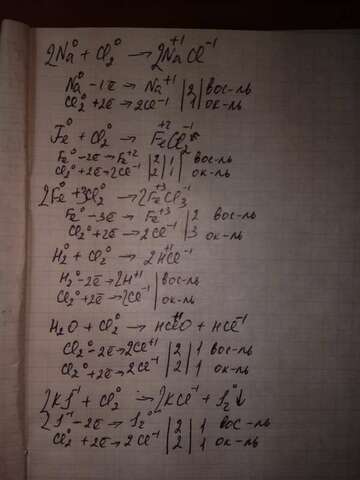 2Na⁰ + Cl₂⁰ → 2Na⁺¹Cl⁻¹
Na⁰ - 1ē → Na⁺¹ | 2 | вос-ль
Cl₂⁰ + 2ē → 2Cl⁻¹ | 1 | ок-ль
Fe⁰ + Cl₂⁰ → Fe⁺²Cl₂⁻¹
Fe⁰ - 2ē → Fe⁺² | 2 | 1 | вос-ль
Cl₂⁰ + 2ē → 2Cl⁻¹ | 2 | 1 | ок-ль
2Fe⁰ + 3Cl₂⁰ → 2Fe⁺³Cl₃⁻¹
Fe⁰ - 3ē → Fe⁺³ | 2 вос-ль
Cl₂⁰ + 2ē → 2Cl⁻¹ | 3 ок-ль
H₂⁰ + Cl₂⁰ → 2H⁺¹Cl⁻¹
H₂⁰ - 2ē → 2H⁺¹ | вос-ль
Cl₂⁰ + 2ē → 2Cl⁻¹ | ок-ль
H₂O + Cl₂⁰ → HCl⁺¹O + HCl⁻¹
Cl₂⁰ - 2ē → 2Cl⁺¹ | 2 | 1 вос-ль
Cl₂⁰ + 2ē → 2Cl⁻¹ | 2 | 1 ок-ль
2KJ⁻¹ + Cl₂⁰ → 2KCl⁻¹ + J₂⁰↓
2J⁻¹ - 2ē → J₂⁰ | 2 | 1 вос-ль
Cl₂⁰ + 2ē → 2Cl⁻¹ | 2 | 1 ок-ль